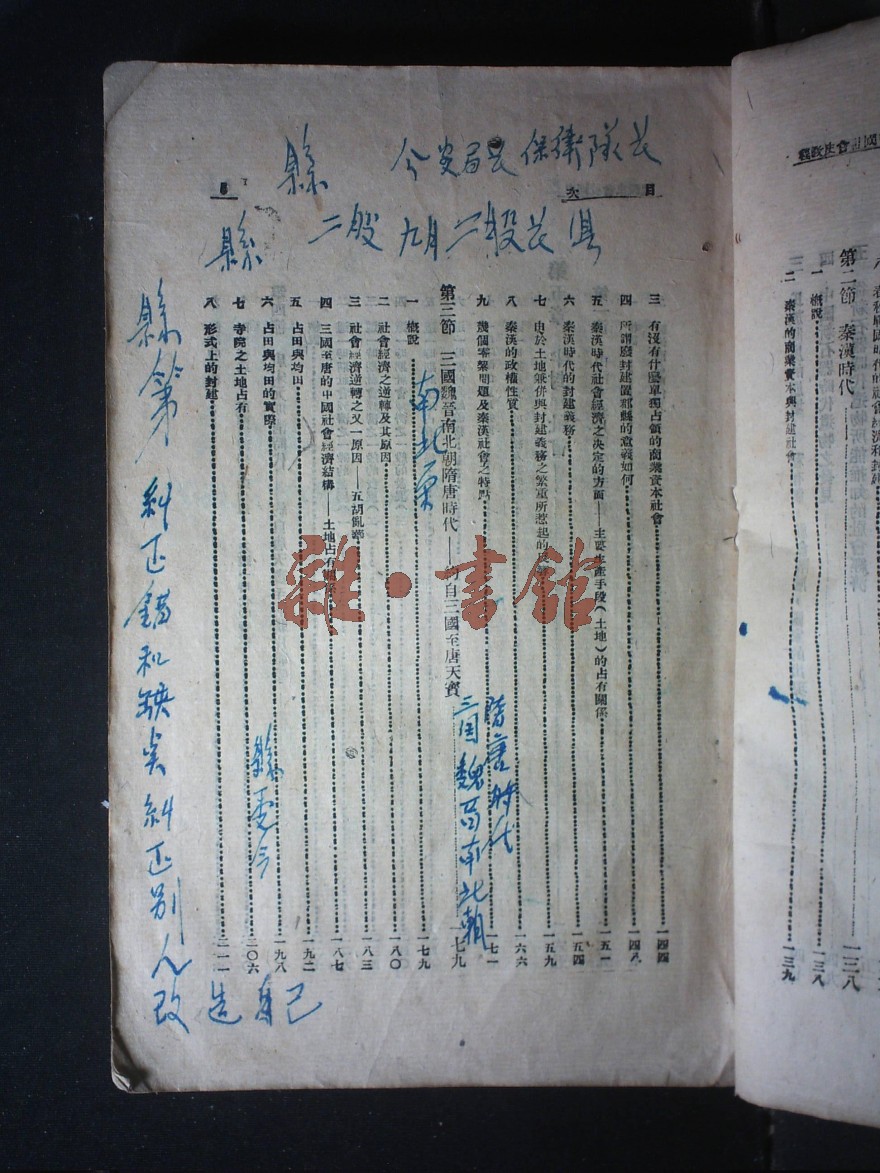 國社會史教程
第二節 秦漢時代 一三八
一 概說 一三八
二 秦漢的商業資本與封建社會 一三九
目 次
三 有沒有什麼單理占領的商業資本社會 一四四
四 所謂廢封建置郡縣的意義如何 一四八
五 秦漢時代社會經濟之決定的方面——主要生產手段(土地)的占有關係 一五一
六 秦漢時代的封建義務 一五四
七 由於土地兼併與封建義務之繁重所惹起的 一五九
八 秦漢的政權性質 一六六
九 幾個零繁問題及秦漢社會之特點 一七一
第三節 三國魏晉南北朝隋唐時代——約自三國至唐天寶 一七九
一 概說 一七九
二 社會經濟之逆轉及其原因 一八〇
三 社會經濟逆轉之又一原因——五胡亂華 一八三
四 三國至唐的中國社會經濟結構——土地占有關係 一八七
五 占田與均田 一九二
六 占田與均田的實際 一九八
七 寺院之土地占有 二〇六
八 形式上的封建 二一一
縣 局長 保衛隊長
縣 二般 九月二般
隋唐時代
三国魏晋南北朝
南北
縣
縣 第 糾正錯和缺点糾正別人
改造自己
雜·書館